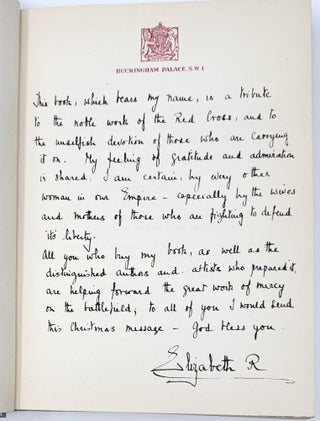 BUCKINGHAM PALACE, S.W.1.
This book, which bears my name, is a tribute
to the noble work of the Red Cross, and to
the unselfish devotion of those who are carrying
it on. My feeling of gratitude and admiration
is shared, I am certain, by every other
woman in our Empire - especially by the wives
and mothers of those who are fighting to defend
its liberty.
All you who buy my book, as well as the
distinguished authors and artists who prepared it,
are helping forward the great work of mercy
on the battlefield; to all of you I would send
this Christmas message - God bless you.
Elizabeth R